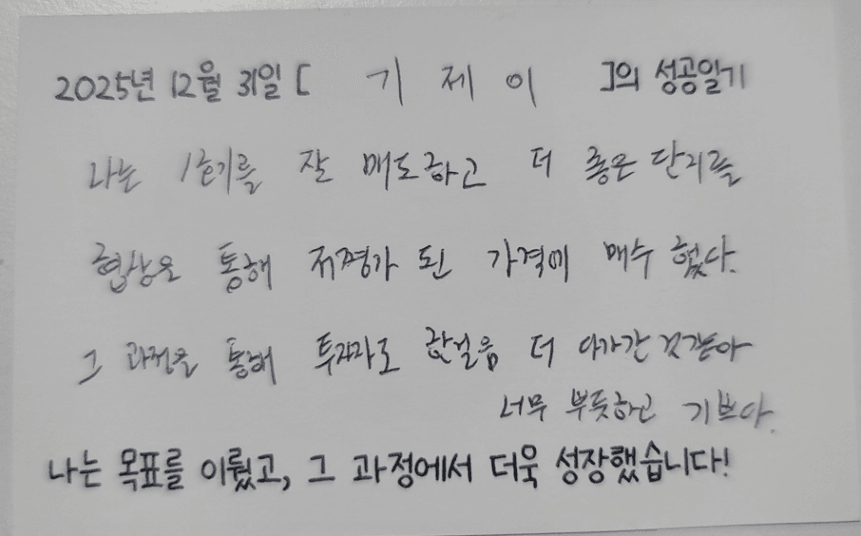 2025년 12월 31일 [ 기 제 이 ]의 성공일기
나는 1호기를 잘 매도하고 더 좋은 단지를
협상을 통해 저평가 된 가격에 매수 했다.
그 과정을 통해 투자자로 한걸음 더 다가간 것같아
너무 뿌듯하고 기쁘다.
나는 목표를 이뤘고, 그 과정에서 더욱 성장했습니다!